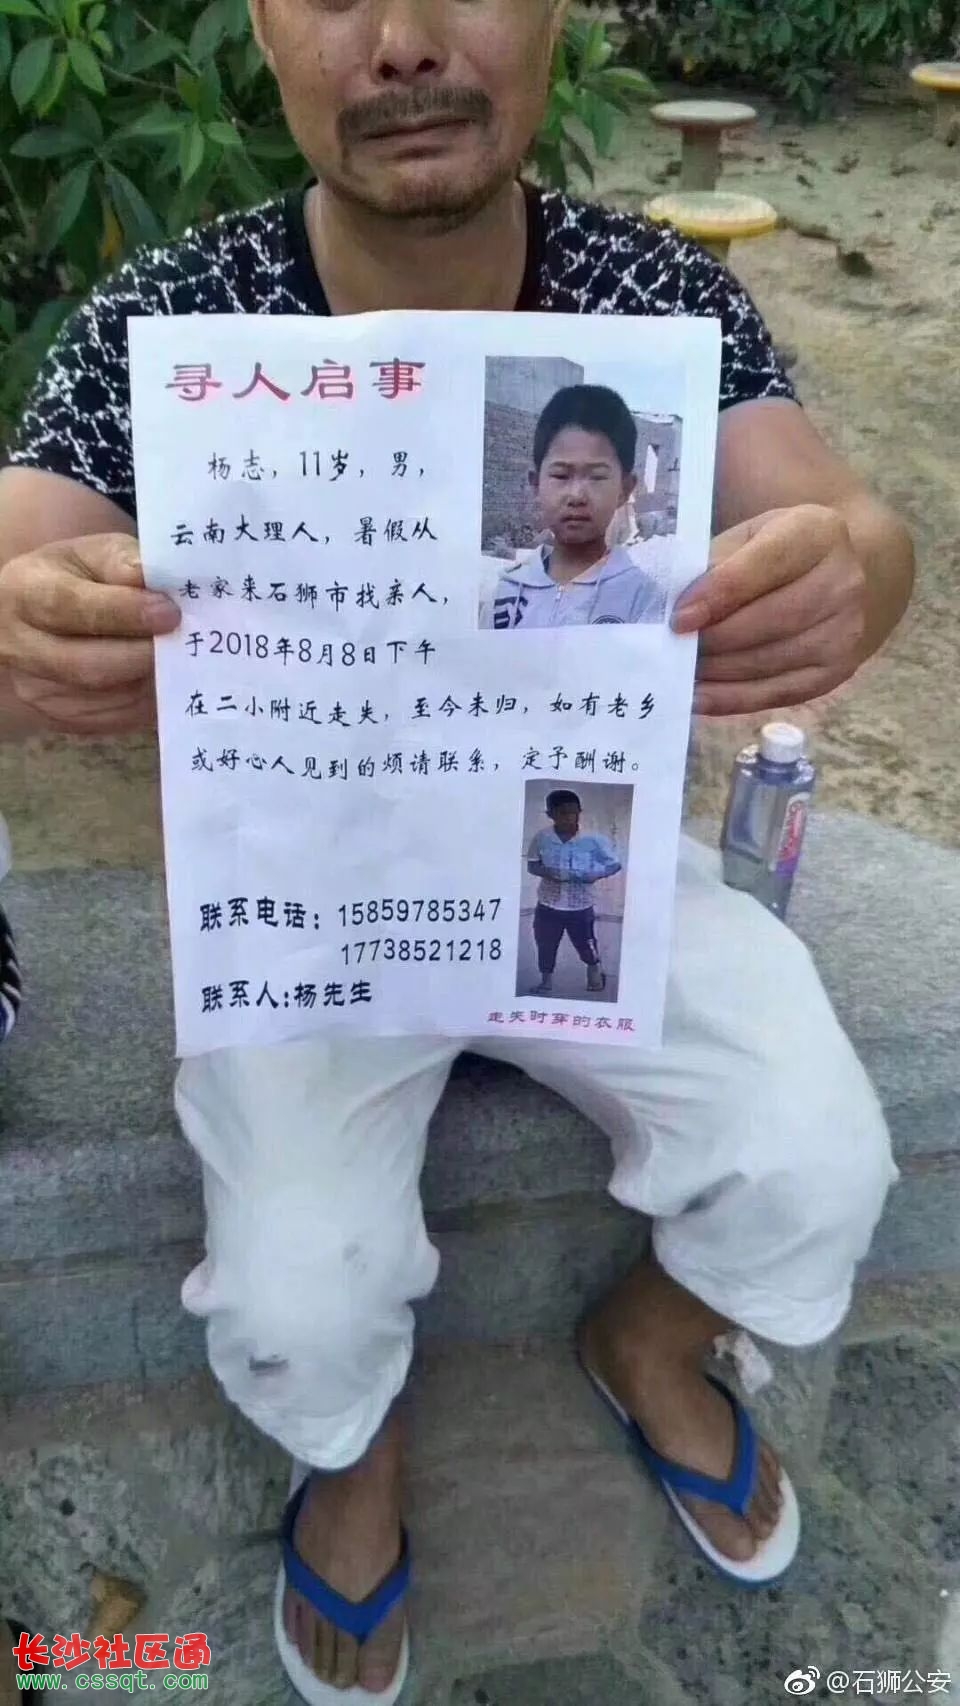 寻人启事
杨志，11岁，男，
云南大理人，暑假从
老家来石狮市找亲人，
于2018年8月8日下午
在二小附近走失，至今未归，如有老乡
或好心人见到的烦请联系，定予酬谢。
联系电话：15859785347
17738521218
联系人:杨先生
走失时穿的衣服
长沙社区通
www.cssqt.com
@石狮公安